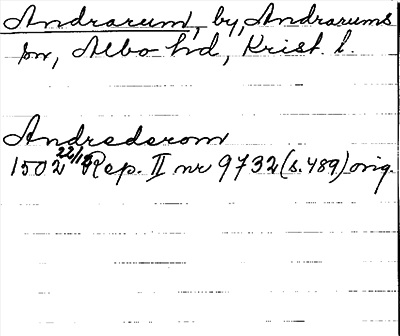 Andrarum, by, Andrarums
sn, Albo hd, Krist. l.
Andrederom
1502 22/12 Rep. II nr 9732 (s. 489) orig.